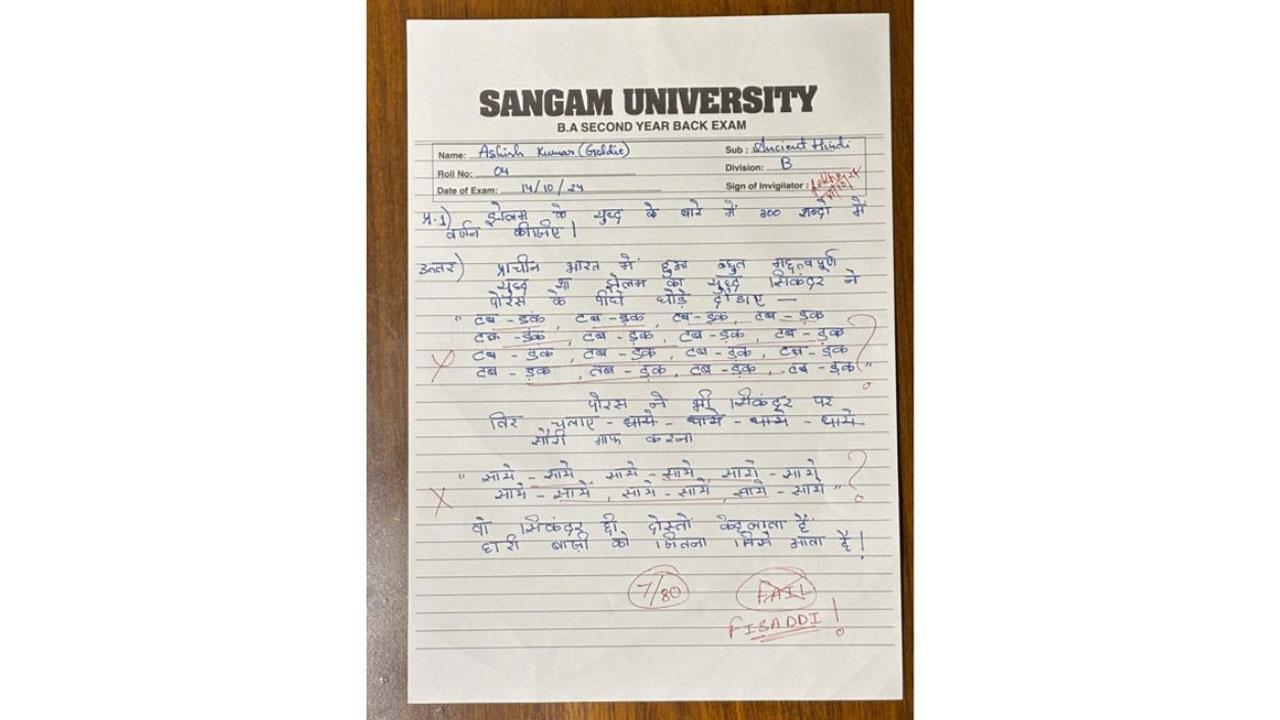 SANGAM UNIVERSITY
B.A SECOND YEAR BACK EXAM
Name: Ashish Kumar (Goldie) Sub : Ancient Hindi
Roll No: 04 Division: B
Date of Exam: 14/10/24 Sign of Invigilator :
प्र.1) झेलम के युद्ध के बारे में 300 शब्दों में
वर्णन कीजिए |
उत्तर) प्राचीन भारत में हुआ बहुत महत्वपूर्ण
युद्ध था झेलम का युद्ध सिकंदर ने
पोरस के पीछे घोड़े दौडाए —
" टब - डक , टब - डक , टब - डक , टब - डक
टब - डक , टब - डक , टब - डक , टब - डक
टब - डक , टब - डक , टब - डक , टब - डक
टब - डक , तब - डक , टब - डक , टब - डक "
?
पोरस ने भी सिकंदर पर
तिर चलाए - धाये - धाये - धाये - धाये
सौरी माफ करना
" साये - साये , साये - साये , साये - साये
साये - साये , साये - साये , साये - साये "
?
वो सिकंदर ही दोस्तो केहलाता है
हारी बाज़ी को जितना जिसे आता है !
7/80 FAIL
FISADDI !